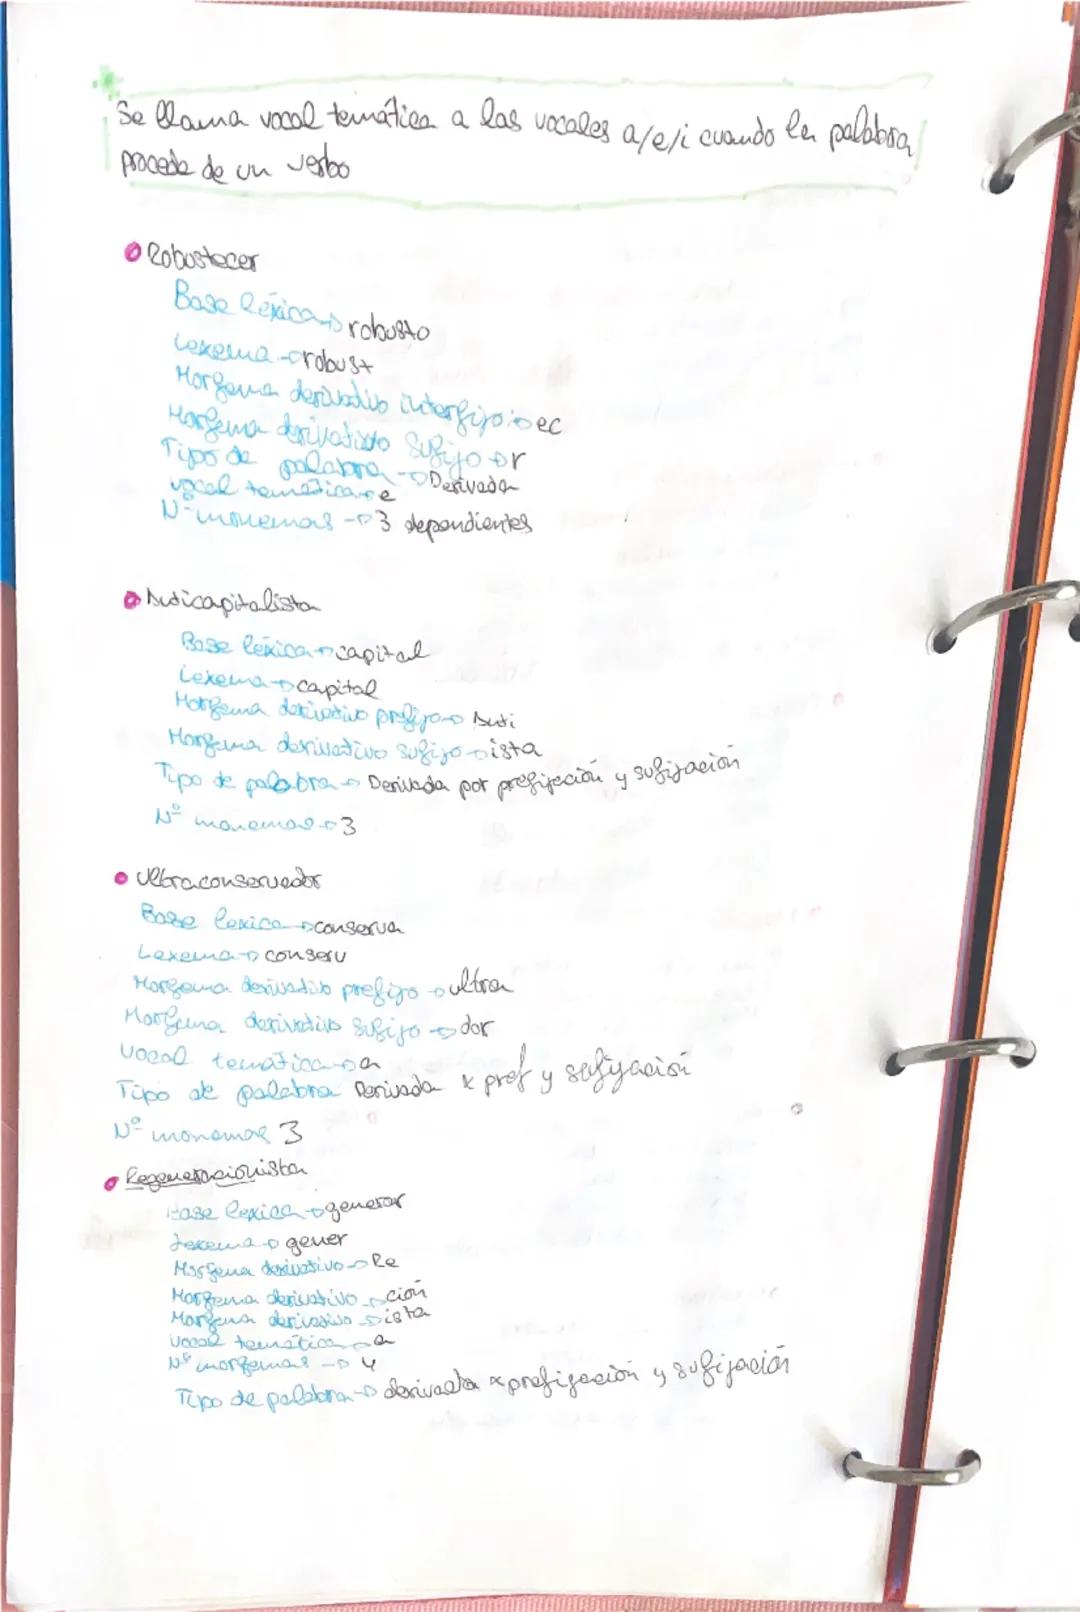 Se llama vocal temática a las vocales a/e/i cuando la palabra
procede de un verbo
Robustecer
Base léxica → robusto
Lexema → robust
Morfema derivativo interfijo → ec
Morfema derivativo sufijo → r
Tipo de palabra → Derivada
vocal temática → e
Nº monemas → 3 dependientes
Anticapitalista
Base léxica → capital
Lexema → capital
Morfema derivativo prefijo → Anti
Morfema derivativo sufijo → ista
Tipo de palabra → Derivada por prefijación y sufijación
Nº monemas → 3
Ultraconservador
Base lexica → conserva
Lexema → conserv
Morfema derivativo prefijo → ultra
Morfema derivativo sufijo → dor
Vocal temática → a
Tipo de palabra Derivada x pref y sufijación
Nº monemas 3
Regeneracionista
Base lexica → generar
Lexema → gener
Morfema derivativo → Re
Morfema derivativo → ción
Morfema derivativo → ista
Vocal temática → a
Nº morfemas → 4
Tipo de palabra → derivada x prefijación y sufijación